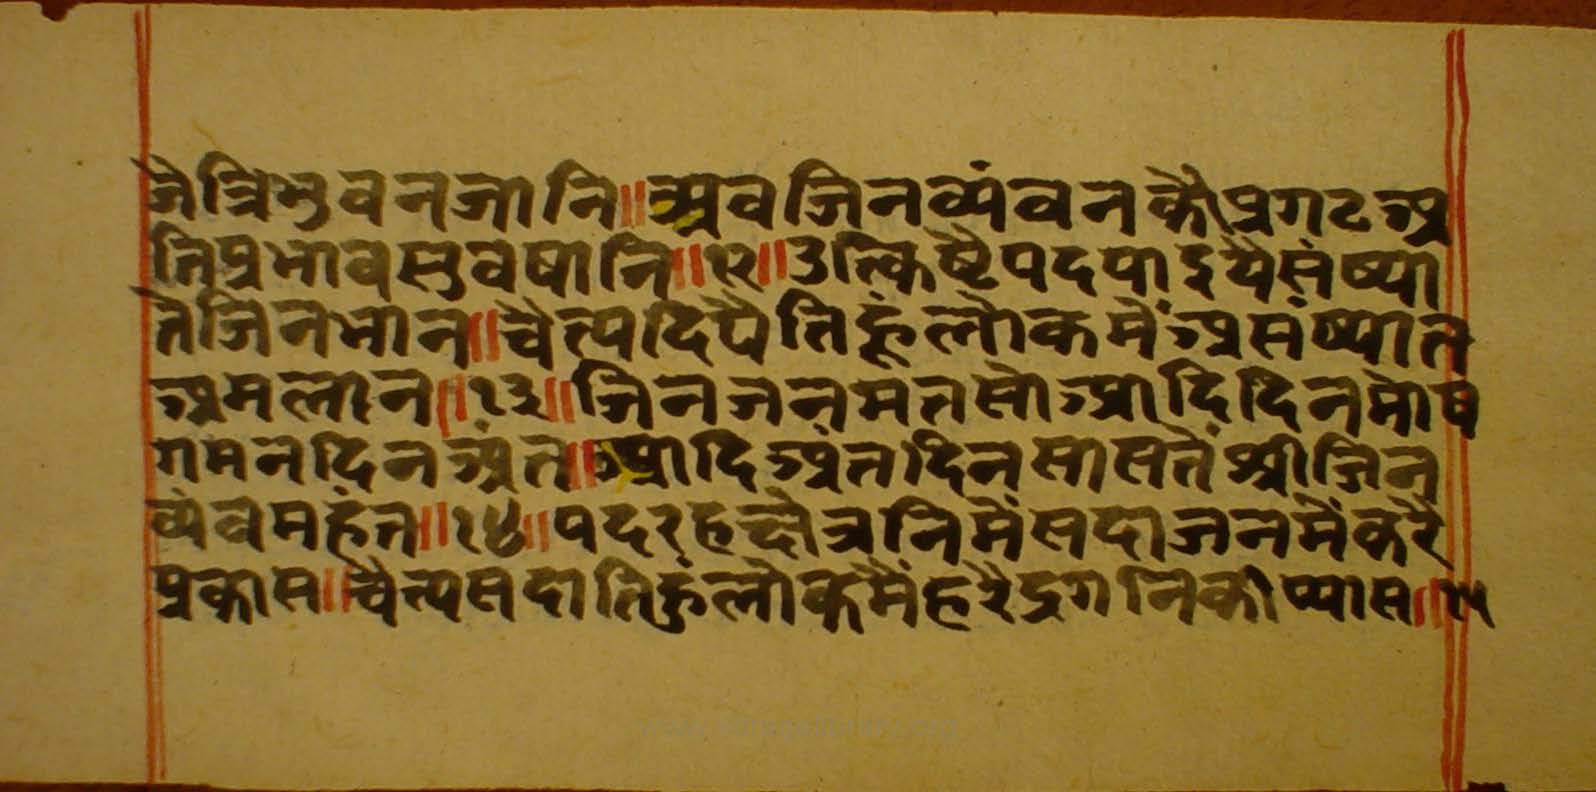 जै त्रिभुवन जानि ॥ अब जिन व्यंबन कौ प्रगट अ
ति प्रभाव सुवषानि ॥ १२ ॥ उत्किष्टै पद पाइयै संष्या
तै जिन भान ॥ चैत्य दिपै तिहूं लोक में असंष्यात
अमलान ॥ १३ ॥ जिन जनम त सो आदि दिन मोष
गमन दिन अंत ॥ आदि अंत दिन सासतें श्री जिन
व्यंब महंत ॥ १४ ॥ पदरह क्षेत्रनि में सदा जनमें करै
प्रकास ॥ चैत्य सदा तिहुं लोक मैं हरै द्रगनि की प्यास ॥ १५